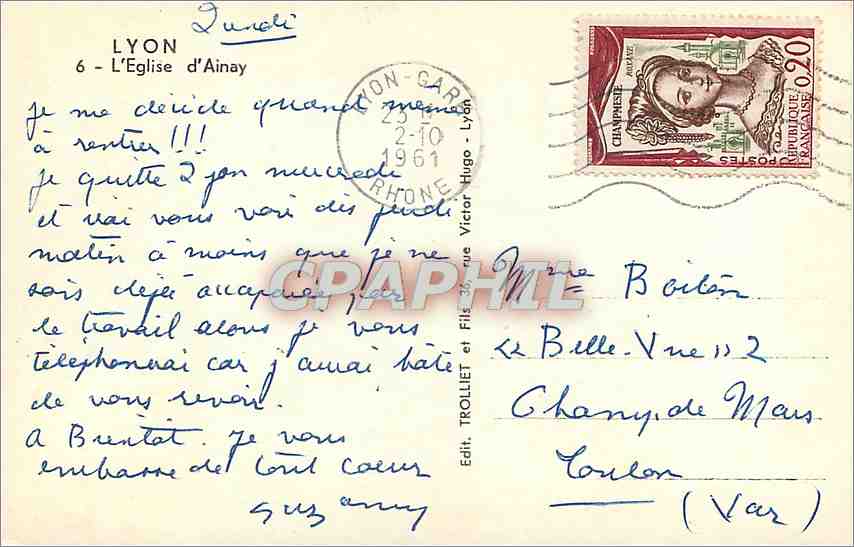 Lundi
LYON
6 - L'Eglise d'Ainay
je me décide quand même
à rentrer !!!
je quitte L yon mercredi
et irai vous voir dès jeudi
matin à moins que je ne
sois déjà accaparée par
le travail alors je vous
téléphonerai car j'aurai hâte
de vous revoir.
A Bientôt. Je vous
embrasse de tout coeur
Suzanny
LYON-GARE
23 H
2-10
1961
RHONE
Edit. TROLLIET et Fils 36, rue Victor Hugo - Lyon
CHAMPMESLÉ
ROXANE
0,20
REPUBLIQUE
FRANÇAISE
POSTES
CPAPHIL
Mme Boitón
"Belle-Vue" 2
Champ de Mars
Toulon
(Var)